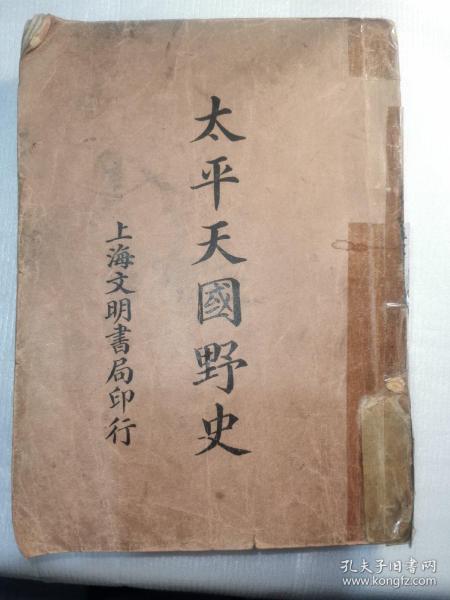 太平天國野史
上海文明書局印行
孔夫子旧书网
www.kongfz.com